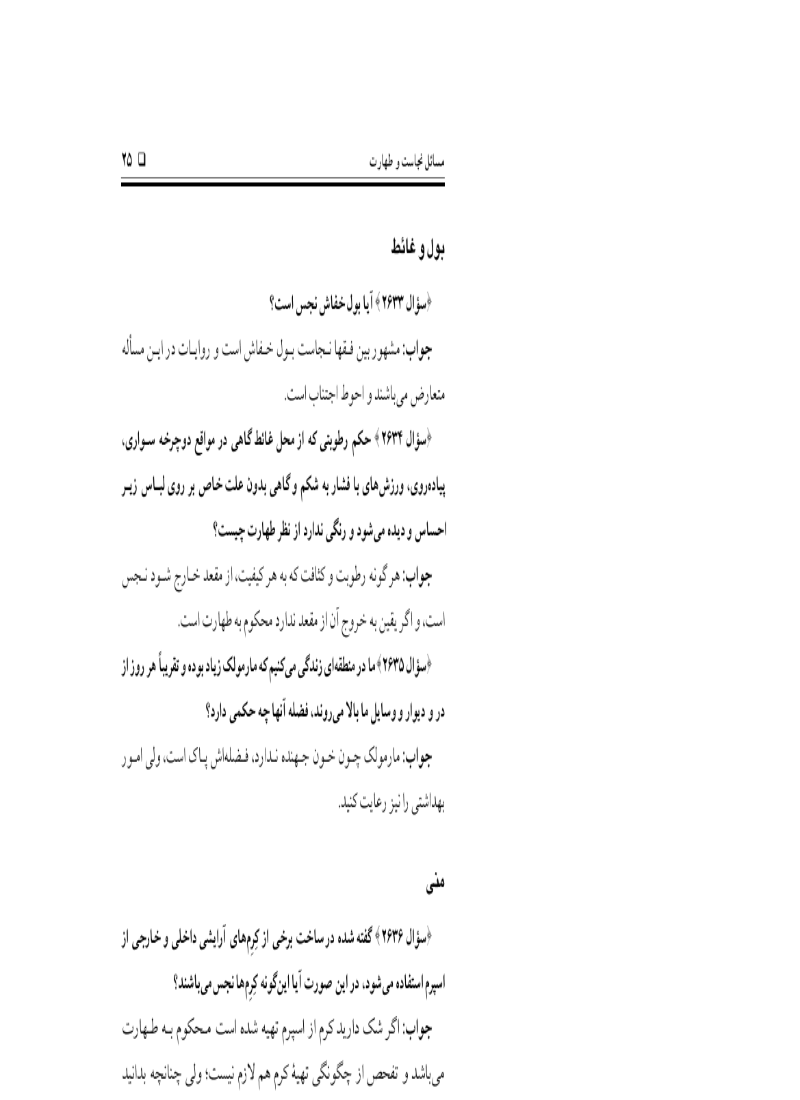 مسائل نجاست و طهارت ❑ ۲۵
بول و غائط
﴿سؤال ۲۶۳۳﴾ آیا بول خفاش نجس است؟
جواب: مشهور بین فقها نجاست بول خفاش است و روایات در این مسأله
متعارض می‌باشند و احوط اجتناب است.
﴿سؤال ۲۶۳۴﴾ حکم رطوبتی که از محل غائط گاهی در مواقع دوچرخه سواری،
پیاده‌روی، ورزش‌های با فشار به شکم و گاهی بدون علت خاص بر روی لباس زیر
احساس و دیده می‌شود و رنگی ندارد از نظر طهارت چیست؟
جواب: هر گونه رطوبت و کثافت که به هر کیفیت، از مقعد خارج شود نجس
است، و اگر یقین به خروج آن از مقعد ندارد محکوم به طهارت است.
﴿سؤال ۲۶۳۵﴾ ما در منطقه‌ای زندگی می‌کنیم که مارمولک زیاد بوده و تقریباً هر روز از
در و دیوار و وسایل ما بالا می‌روند، فضله آنها چه حکمی دارد؟
جواب: مارمولک چون خون جهنده ندارد، فضله‌اش پاک است، ولی امور
بهداشتی را نیز رعایت کنید.
منی
﴿سؤال ۲۶۳۶﴾ گفته شده در ساخت برخی از کِرِم‌های آرایشی داخلی و خارجی از
اسپرم استفاده می‌شود، در این صورت آیا این‌گونه کِرِم‌ها نجس می‌باشند؟
جواب: اگر شک دارید کرم از اسپرم تهیه شده است محکوم به طهارت
می‌باشد و تفحص از چگونگی تهیۀ کرم هم لازم نیست؛ ولی چنانچه بدانید